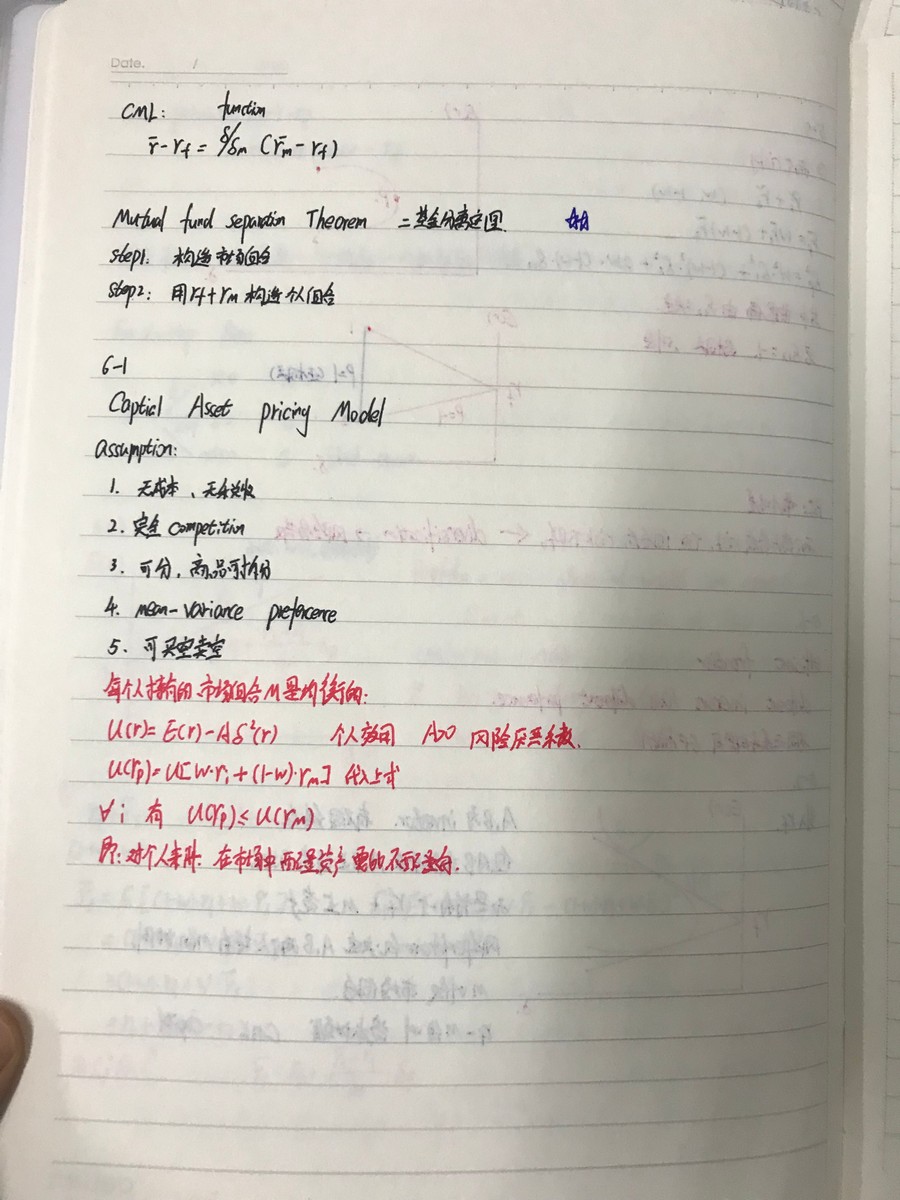 Date. /
CML: function
r̄-rf = δ/δm (r̄m-rf)
Mutual fund separation Theorem 二基金分离定理.
step1: 构造市场组合
step2: 用rf+rm构造个人组合
6-1
Captial Asset pricing Model
assumption:
1. 无成本、无税收
2. 完全 competition
3. 可分, 商品可拆分
4. mean-variance preference
5. 可买空卖空
每个人持有的市场组合M是均衡的:
U(r)= E(r)-Aδ²(r) 个人效用 A>0 风险厌恶系数.
U(rp)=U[w·ri+(1-w)·rm] 代入上式
∀i 有 U(rp)≤U(rm)
即: 对个人来讲. 在市场中配置资产 要比不配置